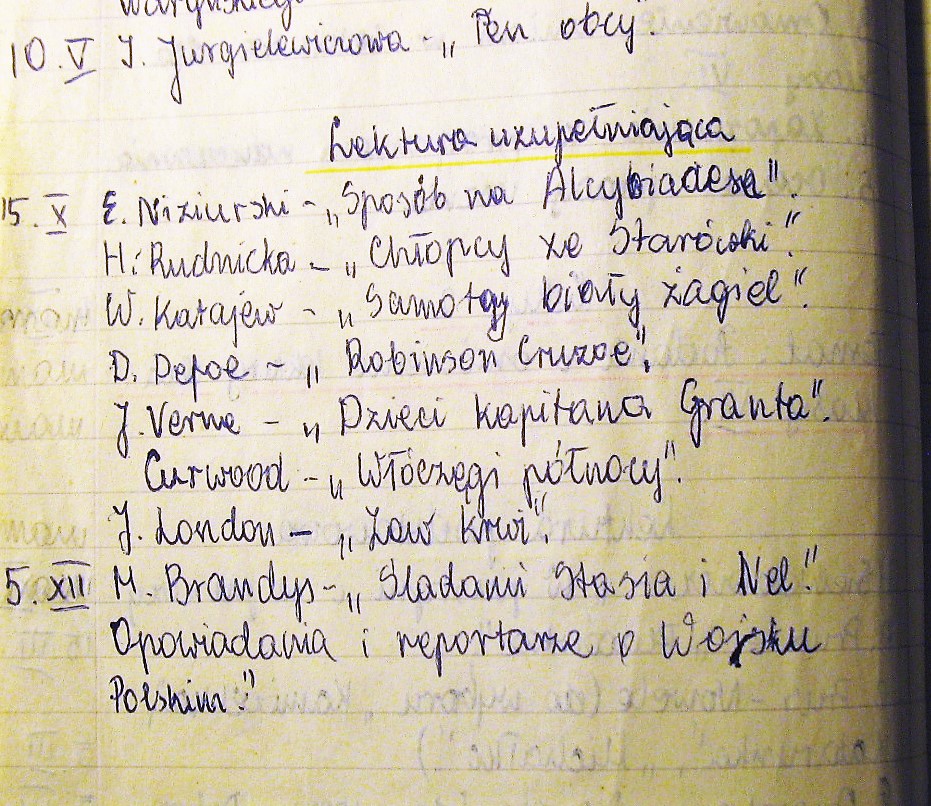 Waryńskiego
10. V J. Jurgielewiczowa - „Ten obcy".
Lektura uzupełniająca
15. X E. Niziurski - „Sposób na Alcybiadesa".
H. Rudnicka - „Chłopcy ze Starówki".
W. Katajew - „Samotny biały żagiel".
D. Defoe - „Robinson Cruzoe".
J. Verne - „Dzieci kapitana Granta".
Curwood - „Włóczęgi północy".
J. London - „Zew krwi".
5. XII M. Brandys - „Śladami Stasia i Nel."
Opowiadania i reportarze o Wojsku
Polskim"